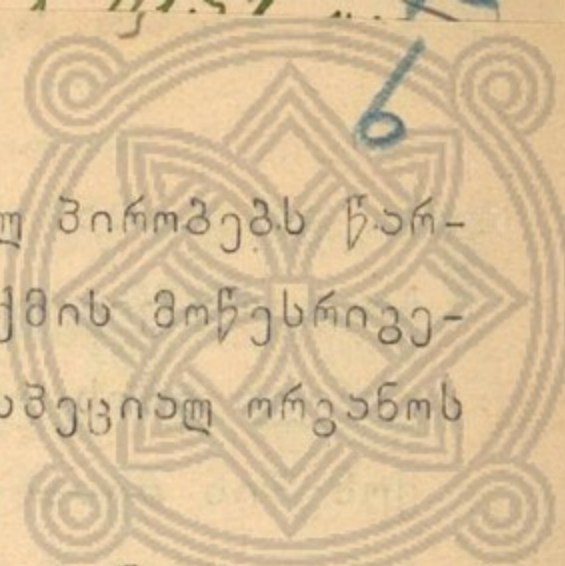 6
ლ პირობებს წარ-
ქმის მოწესრიგე-
სპეციალ ორგანოს